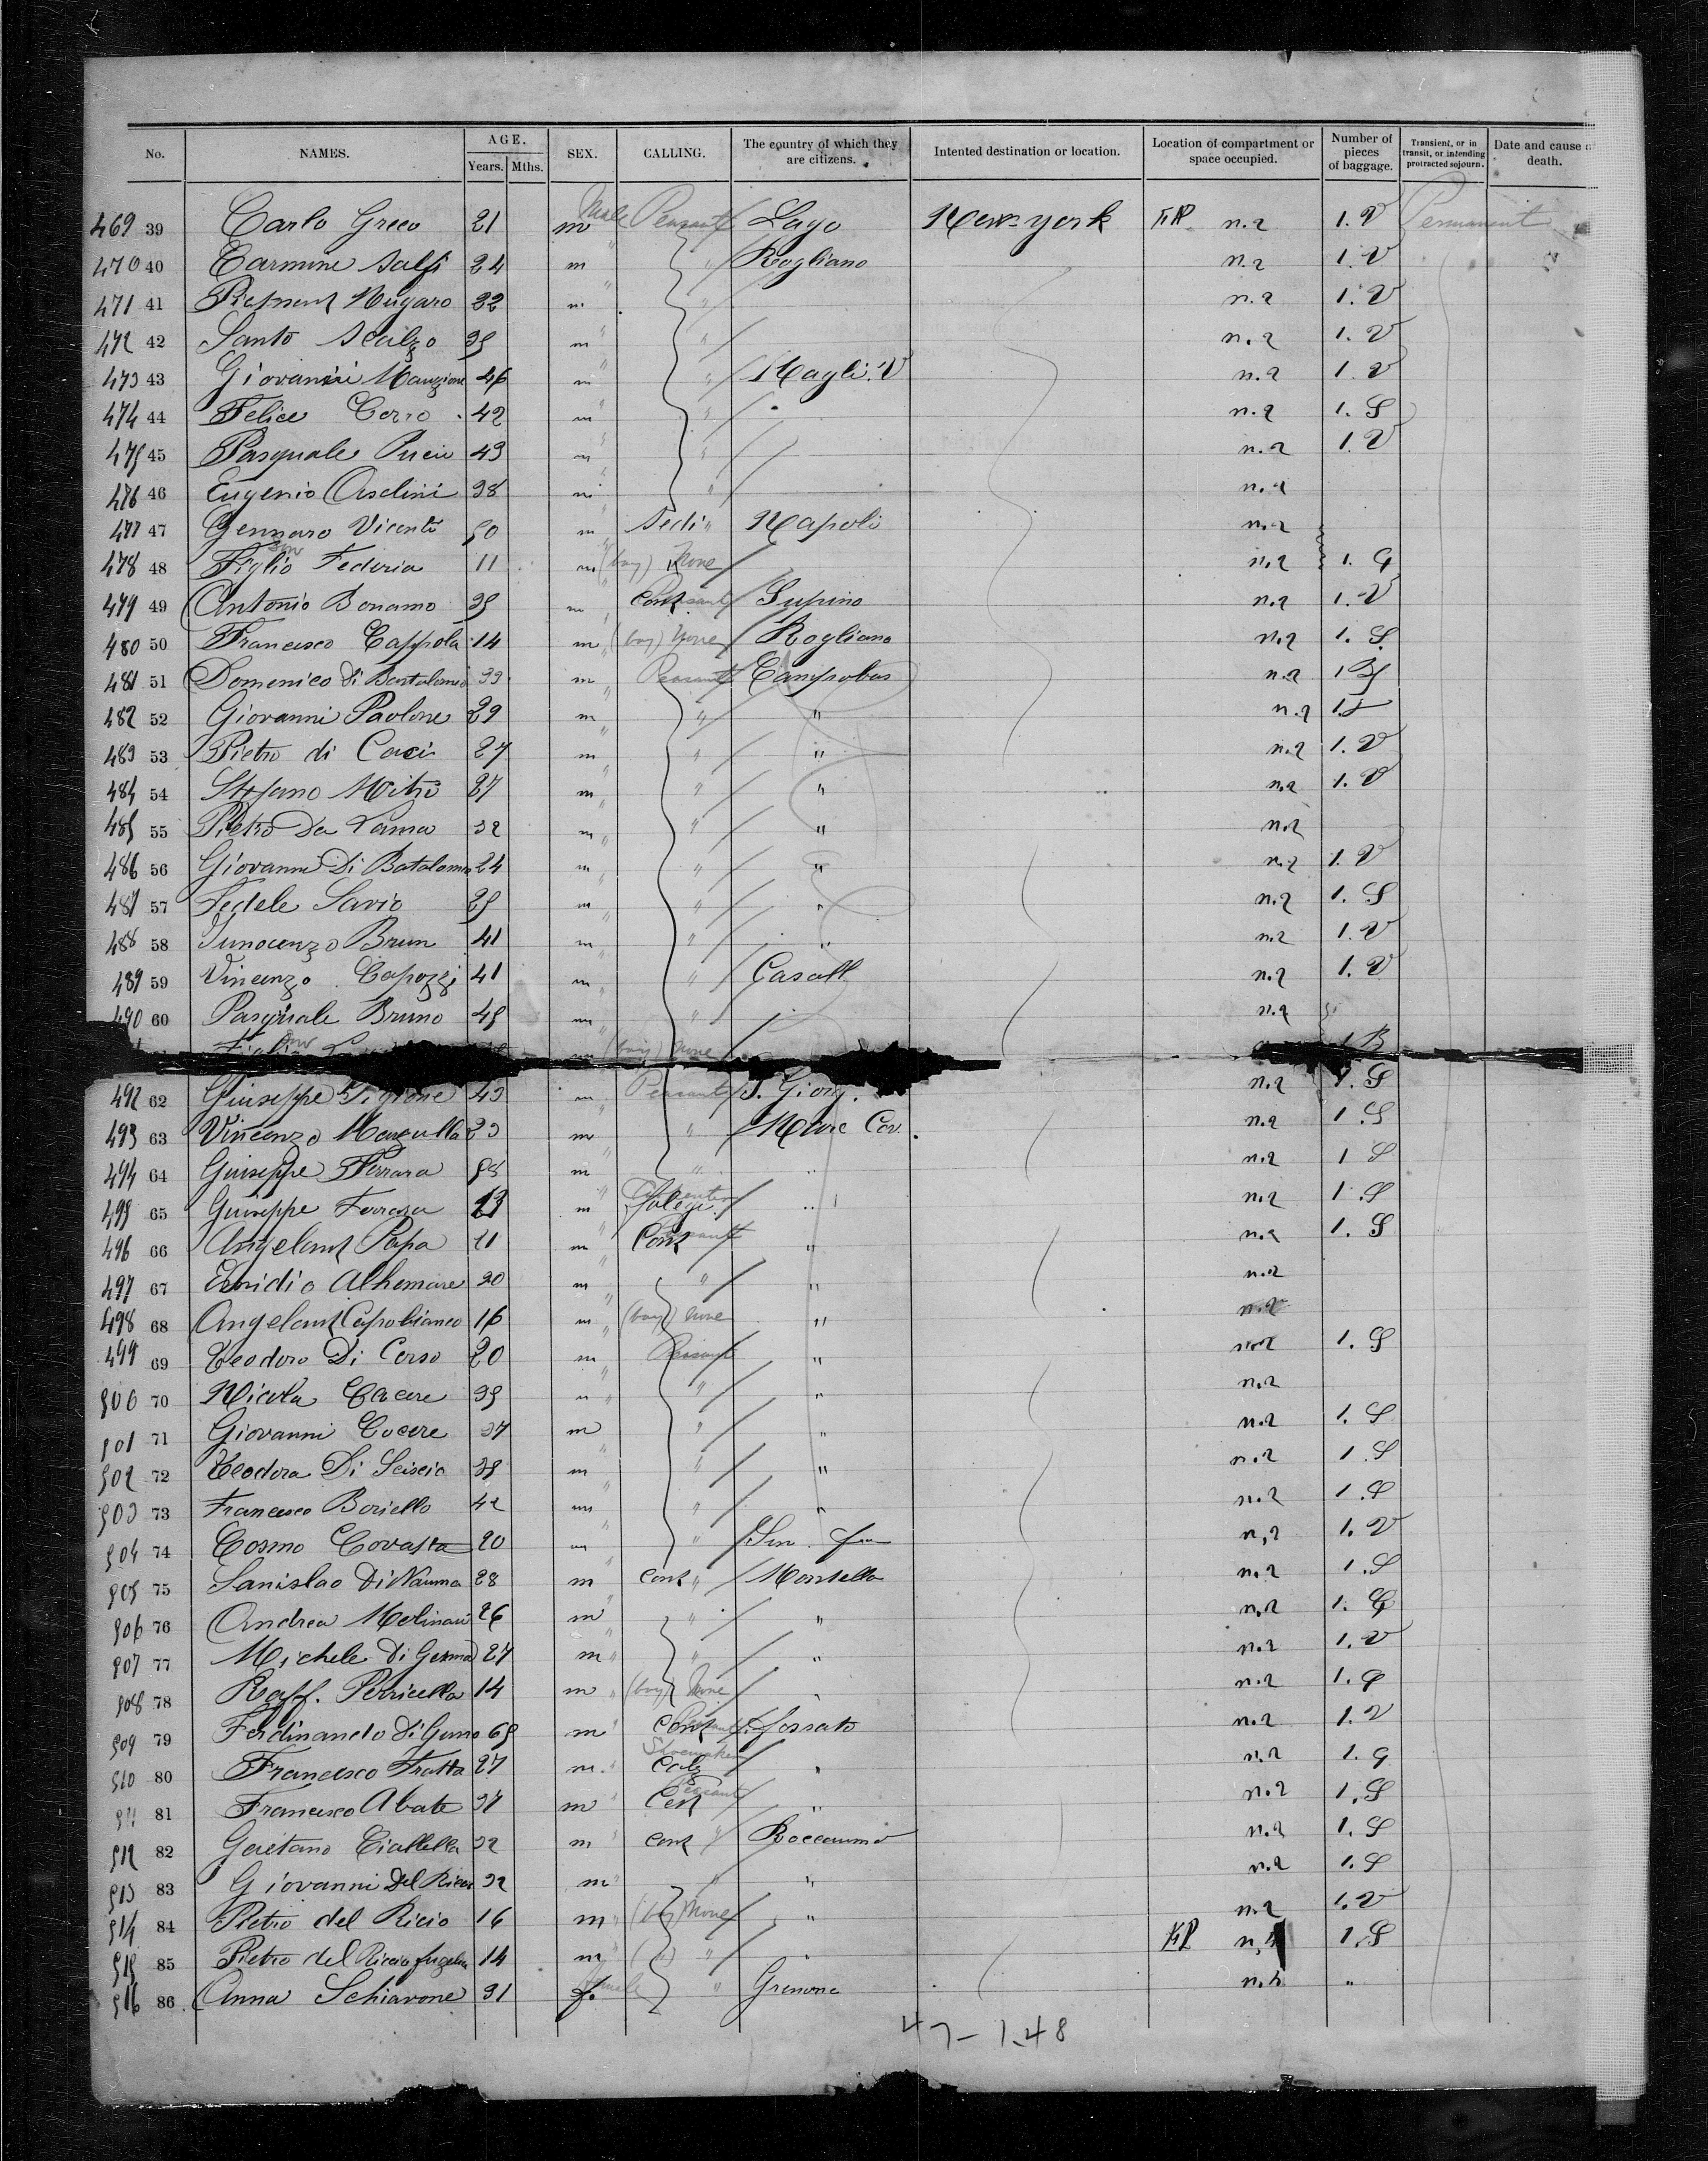 No. NAMES. AGE. Years. Mths. SEX. CALLING. The country of which they are citizens. Intented destination or location. Location of compartment or space occupied. Number of pieces of baggage. Transient, or in transit, or intending protracted sojourn. Date and cause death.
469 39 Carlo Greco 21 m Male Peasant Lago New-york n.2 1. V Permanent
470 40 Carmine Salfi 24 m " " Rogliano n.2 1. V
471 41 Nugaro 22 m " " n.2 1. V
472 42 Santo Scalzo 35 m " " n.2 1. V
473 43 Giovanni Manzione 46 m " " Magli. V n.2 1. V
474 44 Felice Cerro 42 m " " n.2 1. S
475 45 Pasquale 43 m " " n.2 1. V
476 46 Eugenio 38 m " " n.2
477 47 Gennaro Vicenti 50 m " Sedi " Napoli n.2
478 48 Figlio son Federia 11 m " (boy) None n.2 1. G
479 49 Antonio Bonamo 35 m " Cont Peasant Supino n.2 1. V
480 50 Francesco Cappola 14 m " (boy) None Rogliano n.2 1. S.
481 51 Domenico Di Bartolomeo 33 m " Peasant Campobas n.2 1
482 52 Giovanni Paolone 29 m " " " n.2 1.
483 53 Pietro di Caci 27 m " " " n.2 1. V
484 54 Stefano Mitri 27 m " " " n.2 1. V
485 55 Pietro De Lama 32 m " " " n.2
486 56 Giovanni Di Batalom 24 m " " " n.2 1. V
487 57 Fedele Savio 25 m " " " n.2 1. S
488 58 Innocenzo Brun 41 m " " " n.2 1. V
489 59 Vincenzo Capozzi 41 m " " Casall n.2 1. V
490 60 Pasquale Bruno 45 m " " n.2
son m (boy) None 1 B
492 62 Giuseppe 43 m Peasant S. Giorg. n.2 1. S
493 63 Vincenzo 23 m " " n.2 1. S
494 64 Giuseppe Ferrara m " " " n.2 1 S
495 65 Giuseppe Ferrara 13 m " Carpenter Faleg. " n.2 1. S
496 66 Angelant Papa m " Cont Peasant " n.2 1. S
497 67 Emidio 20 m " " " n.2
498 68 Angelant Capobianco 16 m " (boy) None " n.2
499 69 Teodoro Di Corso 20 m Peasant " n.2 1. S
500 70 Nicola Cacere 35 " " " n.2
501 71 Giovanni Cucere 37 m " " n.2 1. S
502 72 Teodora Di Sciscio m " " " n.2 1. S
503 73 Francesco Boriello 42 m " " " n.2 1. S
504 74 Cosmo 20 m " " n.2 1. V
505 75 Sanislao Di Nauma 28 m " Cont " Montella n.2 1. S
506 76 Andrea Molinari 26 m " " " n.2 1. G
507 77 Michele Di Genna 27 m " " " n.2 1. V
508 78 Raff. Perricella 14 m " (boy) None " n.2 1. G
509 79 Ferdinando Di Guno 65 m " Cont Peasant fossato n.2 1. V
510 80 Francesco Fratta 27 m " Shoemaker Calz " n.2 1. G
511 81 Francesco Abate 37 m " Cont Peasant " n.2 1. S
512 82 Gaetano Ciallella 32 m " Cont " n.2 1. S
513 83 Giovanni Del Ricci 32 m " " " n.2 1. S
514 84 Pietro del Ricio 16 m " (boy) None " n.2 1. V
515 85 Pietro del Riccio 14 m " ( " ) " " n. 1. S
516 86 Anna Schiavone 31 f. female " n. "
47-1.48